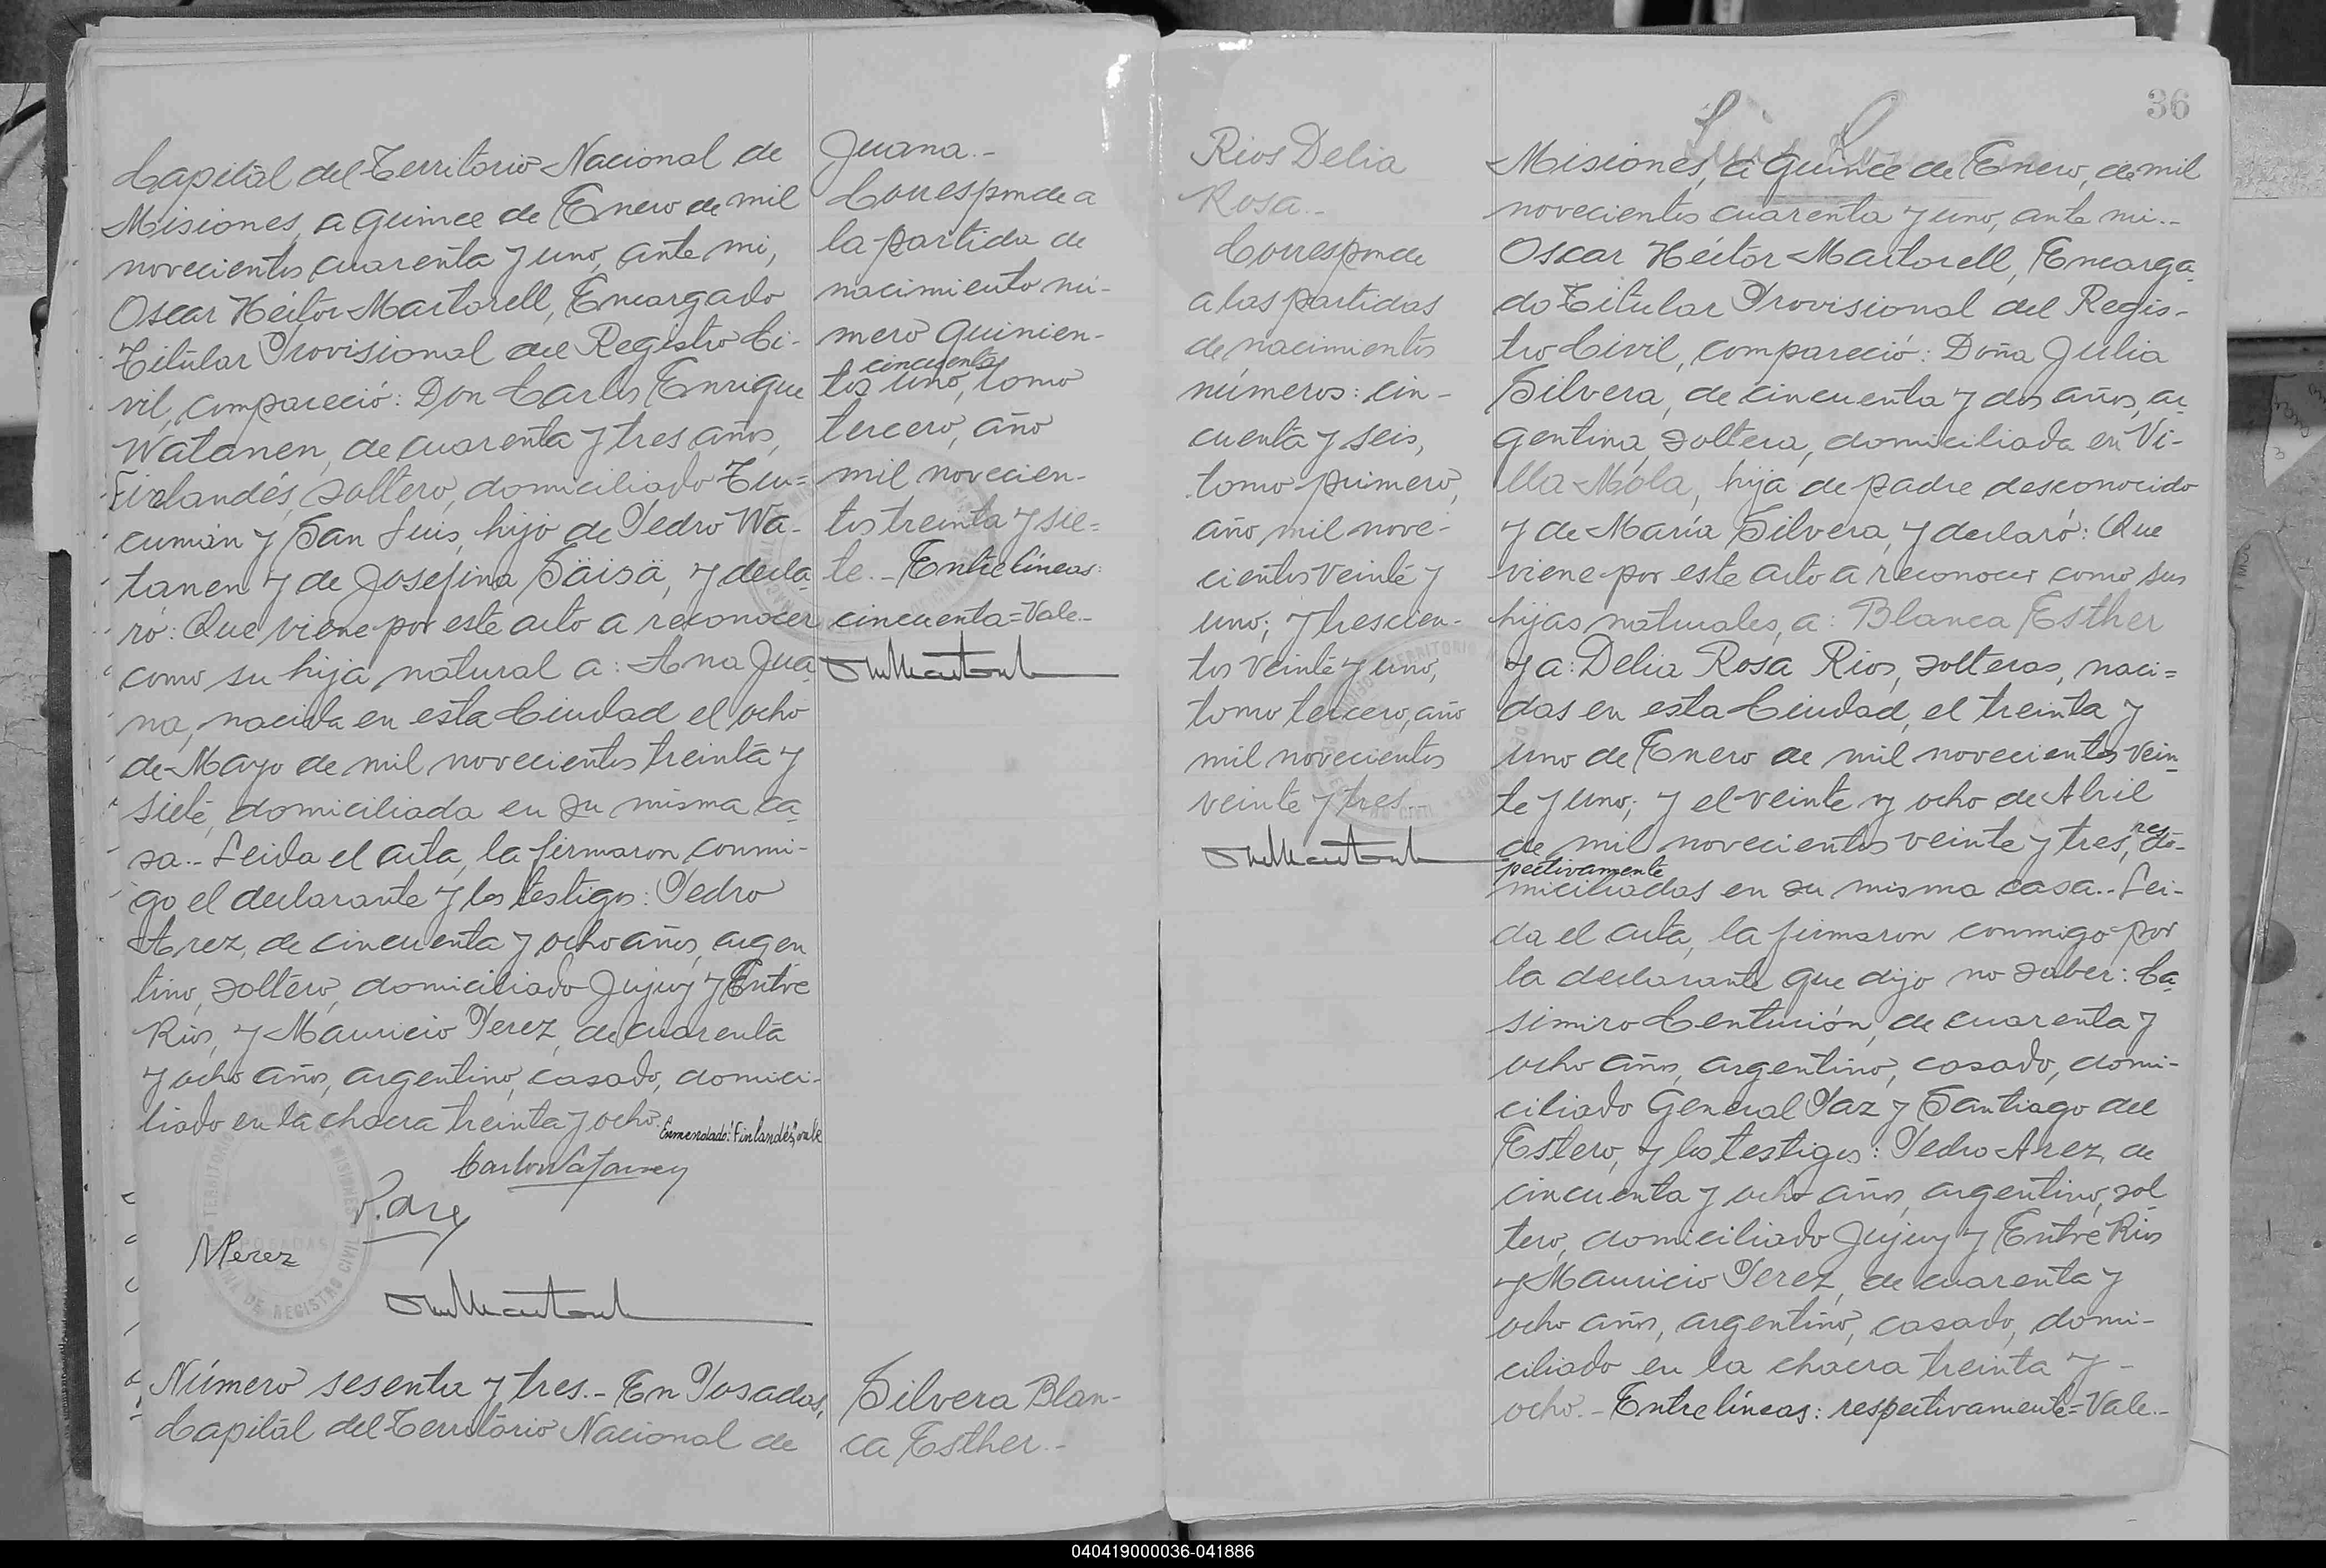 Capital del Territorio Nacional de
Misiones, a quince de Enero de mil
novecientos cuarenta y uno, ante mi,
Oscar Héctor Martorell, Encargado
Titular Provisional del Registro Ci-
vil, compareció: Don Carlos Enrique
Watanen, de cuarenta y tres años,
Finlandés, soltero, domiciliado Tu-
cumán y San Luis, hijo de Pedro Wa-
tanen y de Josefina Säisä, y decla-
ró: Que viene por este acto a reconocer
como su hija natural a: Ana Jua-
na, nacida en esta Ciudad el ocho
de Mayo de mil novecientos treinta y
siete, domiciliada en su misma ca-
sa.- Leida el acta, la firmaron conmi-
go el declarante y los testigos: Pedro
Arez, de cincuenta y ocho años, argen
tino, soltero, domiciliado Jujuy y Entre
Rios, y Mauricio Perez, de cuarenta
y ocho años, argentino, casado, domici-
liado en la chacra treinta y ocho. Enmendado: "Finlandés", vale
P. Arez
MPerez
Número sesenta y tres.- En Posadas,
Capital del Territorio Nacional de
Juana.-
Corresponde a
la partida de
nacimiento nú-
mero quinien-
cincuenta
tos uno, tomo
tercero, año
mil novecien-
tos treinta y sie=
te.- Entrelíneas:
cincuenta=Vale.-
Silvera Blan-
ca Esther.-
Rios Delia
Rosa.-
Corresponde
a las partidas
de nacimientos
números: cin-
cuenta y seis,
tomo primero,
año mil nove-
cientos veinte y
uno; y trescien-
tos veinte y uno,
tomo tercero, año
mil novecientos
veinte y tres.-
36
Misiones, a quince de Enero, de mil
novecientos cuarenta y uno, ante mi.-
Oscar Héctor Martorell, Encarga-
do Titular Provisional del Regis-
tro Civil, compareció: Doña Julia
Silvera, de cincuenta y dos años, ar
gentina, soltera, domiciliada en Vi-
lla Mola, hija de padre desconocido
y de María Silvera, y declaró: Que
viene por este acto a reconocer como sus
hijas naturales, a: Blanca Esther
y a: Delia Rosa Rios, solteras, naci=
das en esta Ciudad, el treinta y
uno de Enero de mil novecientos vein-
te y uno; y el veinte y ocho de Abril
de mil novecientos veinte y tres, res do-
pectivamente
miciliadas en su misma casa.- Lei-
da el acta, la firmaron conmigo por
la declarante que dijo no saber: Ca-
simiro Centurión, de cuarenta y
ocho años, argentino, casado, domi-
ciliado General Paz y Santiago del
Estero, y los testigos: Pedro Arez, de
cincuenta y ocho años, argentino, sol
tero, domiciliado Jujuy y Entre Rios
y Mauricio Perez, de cuarenta y
ocho años, argentino, casado, domi-
ciliado en la chacra treinta y -
ocho.- Entrelíneas: respectivamente=Vale.-
040419000036-041886